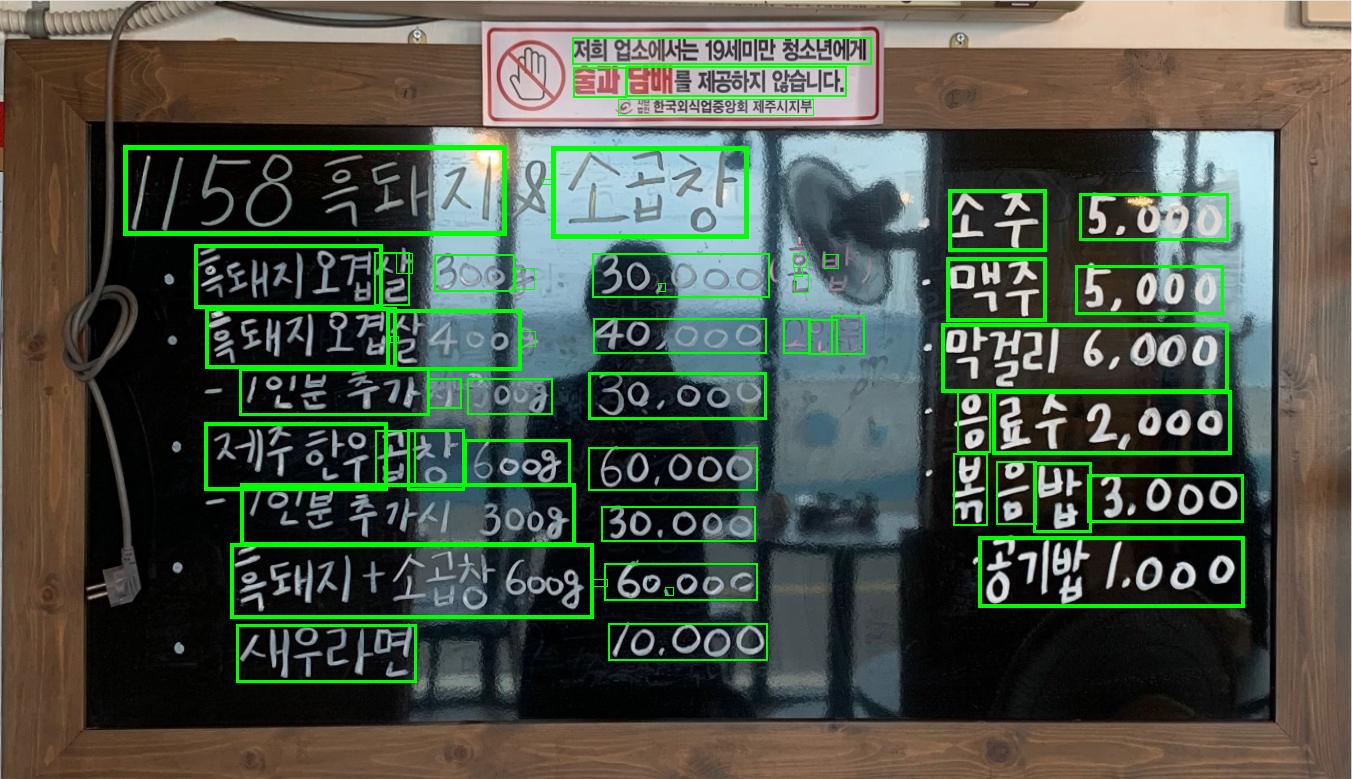 저희 업소에서는 19세미만 청소년에게
술과 담배를 제공하지 않습니다.
재단법인 한국외식업중앙회 제주시지부
1158 흑돼지 & 소곱창
· 흑돼지오겹살 300g 30,000
· 흑돼지오겹살 400g 40,000
- 1인분 추가시 300g 30,000
· 제주한우곱창 600g 60,000
- 1인분 추가시 300g 30,000
· 흑돼지+소곱창 600g 60,000
· 새우라면 10,000
· 소주 5,000
· 맥주 5,000
· 막걸리 6,000
· 음료수 2,000
· 볶음밥 3,000
· 공기밥 1,000